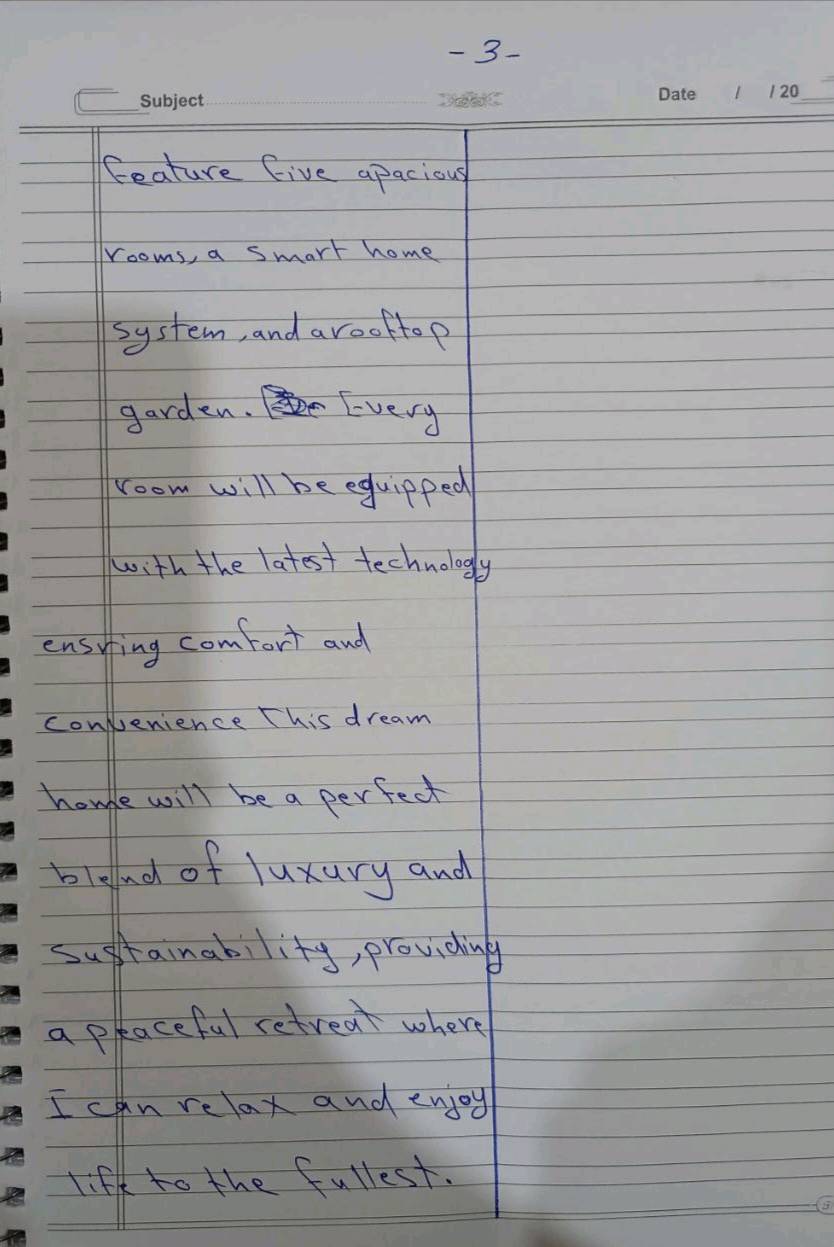 - 3 -
Subject
Date / / 20
feature five apacious
rooms, a smart home
system, and a rooftop
garden. Every
room will be equipped
with the latest technology
ensring comfort and
convenience This dream
home will be a perfect
blend of luxury and
sustainability, providing
a peaceful retreat where
I can relax and enjoy
life to the fullest.